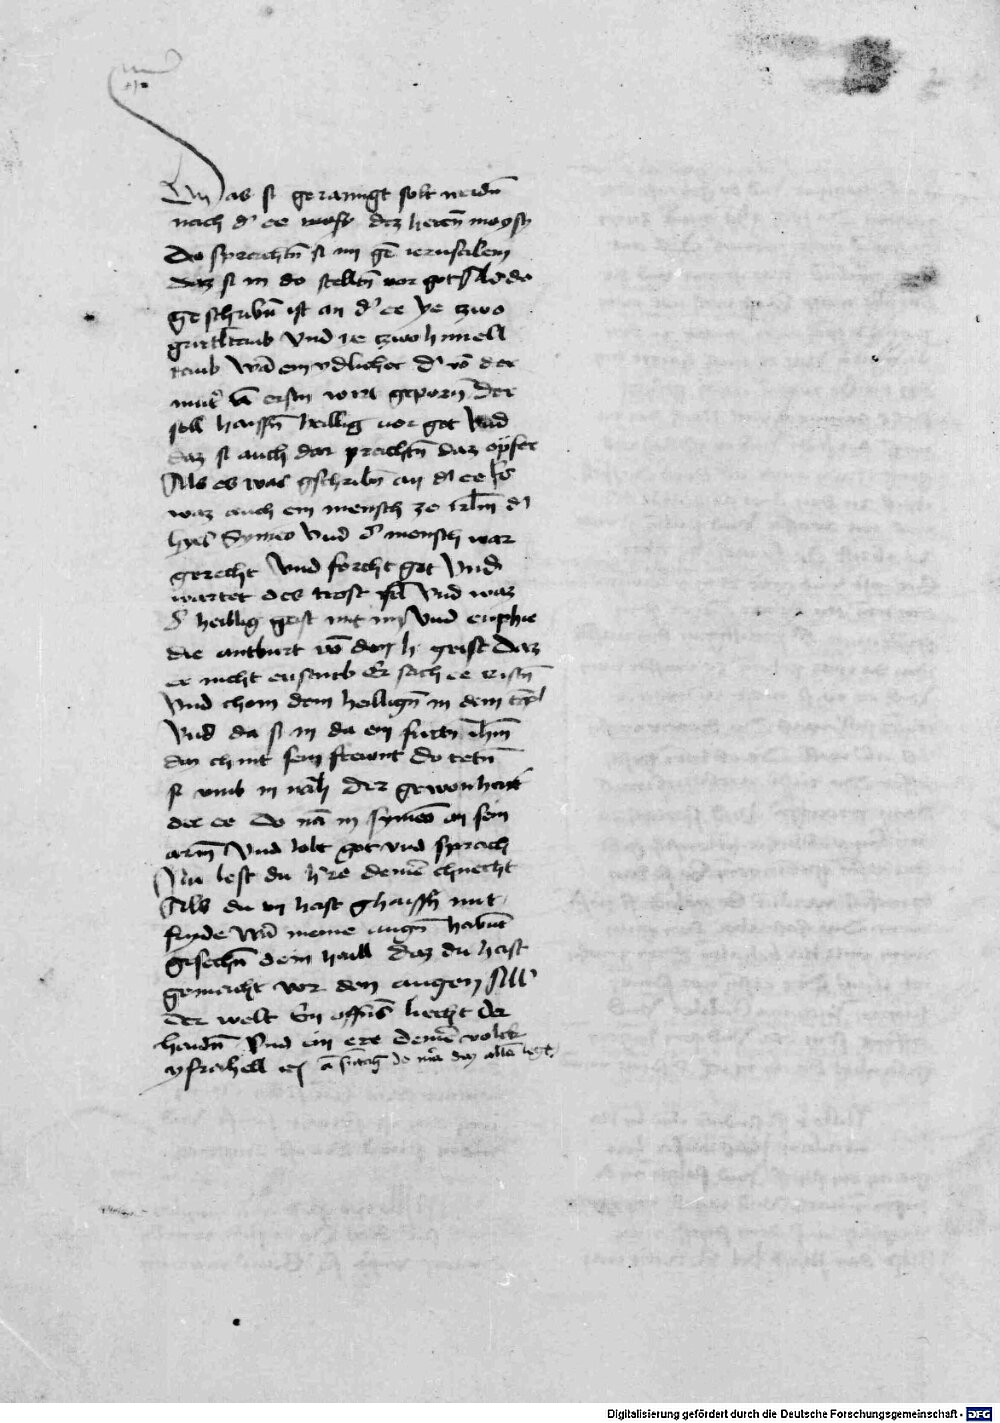 Das si geraingt solt werdn̄
nach d' ee moysy dez herrn̄ moysy
Do sprachtn̄ si in gē ierusalem
daz si in do stelltn̄ vor got Als do
geschribn̄ ist an d' ee ye zwo
gurtltaub Vnd ye zwo himell
taub Wā ein ydlicher d' vō der
mut' erstn wirt geporn̄ Der
soll haissn̄ heillig vor got Vnd
daz si auch dar prachtn̄ daz opfer
Als es was gschribn̄ an d' ee Es
waz auch ein mensch ze irlm̄ d'
hyes Symeō Vnd d' mensch war
gerecht Vnd forcht got Vnd
wartet des trost isrl Vnd waz
d' heillig geist mit im Vnd enphie
die antburt vō dem h. geist Daz
er nicht ensturb Er sach ee cristn̄
Vnd chom dem heillign̄ in dem tēpl
Vnd da si in da ein furtn ihm̄
daz chint sein frewnt Do tetn̄
si vmb in nach Der gewonhait
der ee Do nā in symeō an sein
arm̄ Vnd lobt got vnd sprach
Nu lest du h're deinē chnecht
Als du in hast ghaissn̄ mit
fryde Wā meine augn̄ habnt
gesechn̄ dein haill Daz du hast
gemacht vor den augen All'
der welt Ein offns liecht der
haidn̄ Vnd ein ere deinē volck
ysrahell
Digitalisierung gefördert durch die Deutsche Forschungsgemeinschaft - DFG